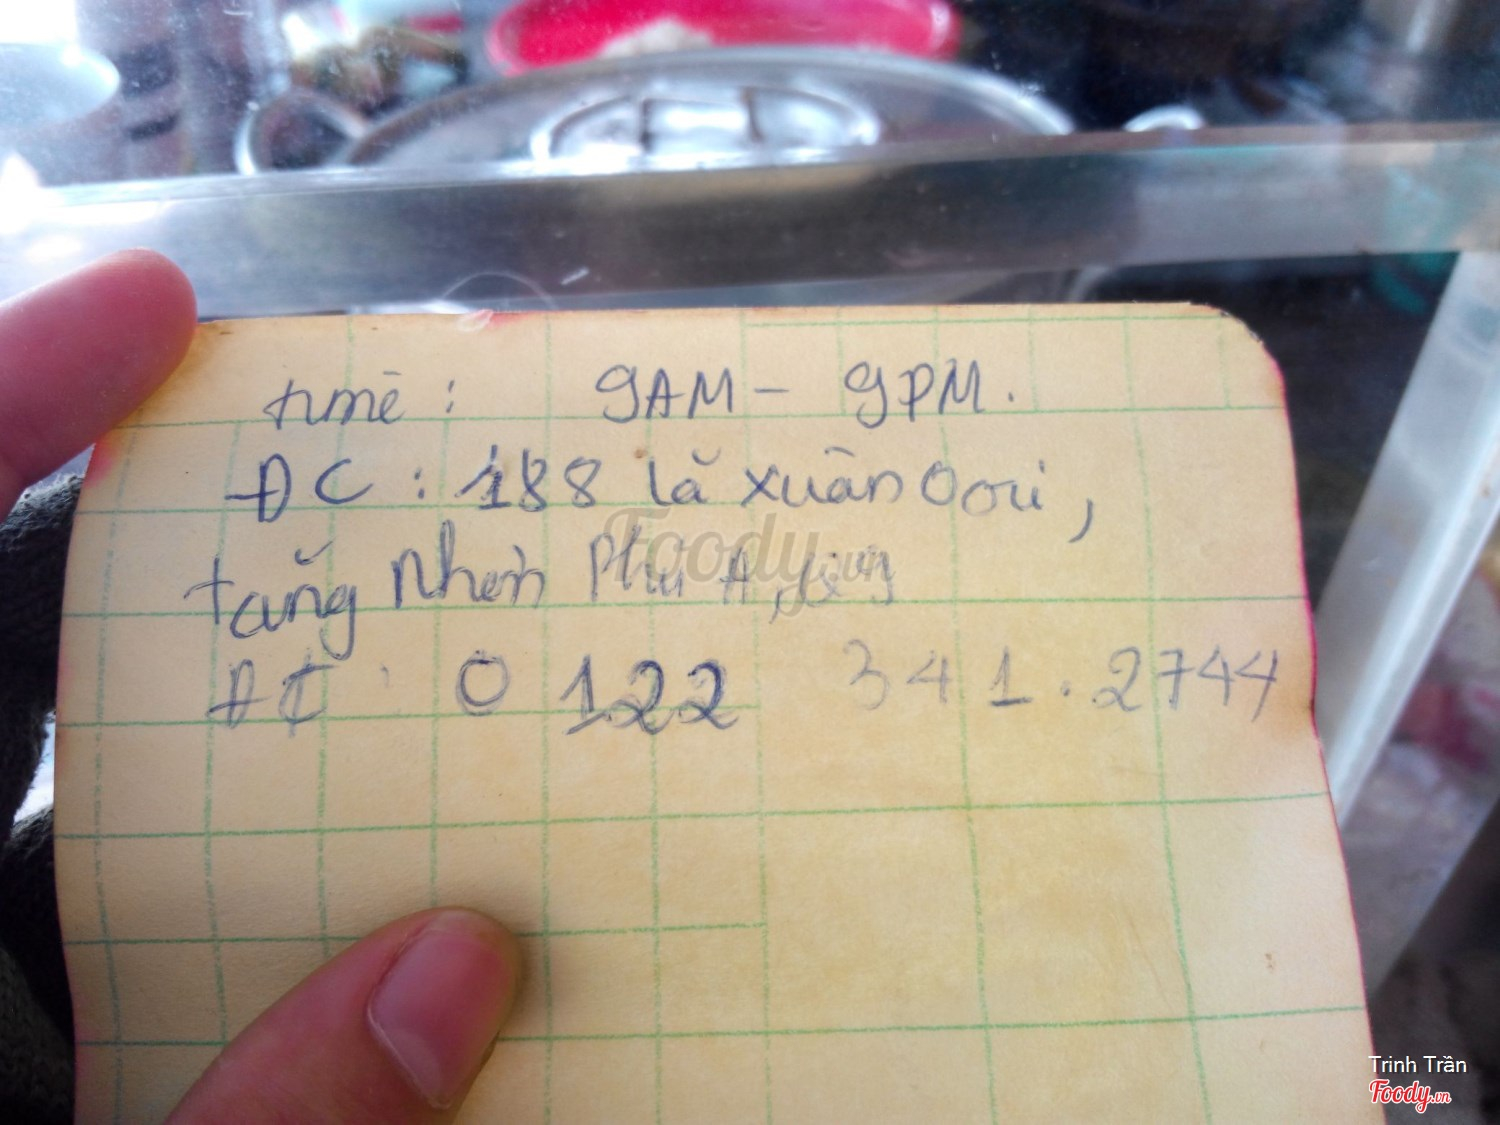 time : 9AM - 9PM.
ĐC : 188 Lã Xuân Oai,
tăng Nhơn Phú A,
ĐT : 0 122 341.2744
Foody.vn
Trinh Trần
Foody.vn